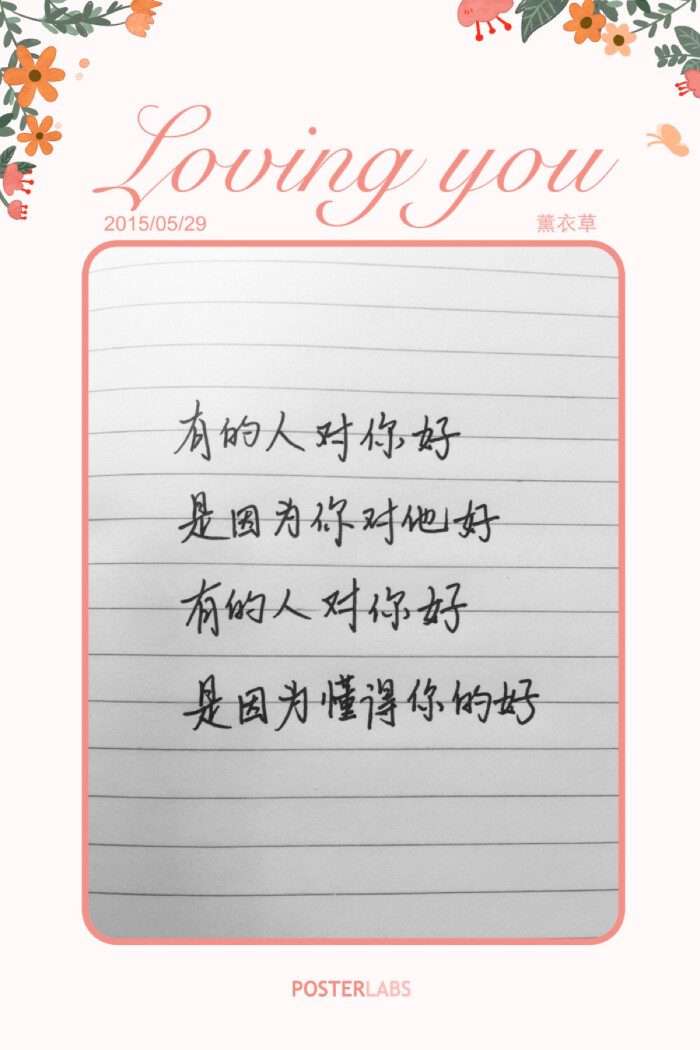 Loving you
2015/05/29 薰衣草
有的人对你好
是因为你对他好
有的人对你好
是因为懂得你的好
POSTERLABS